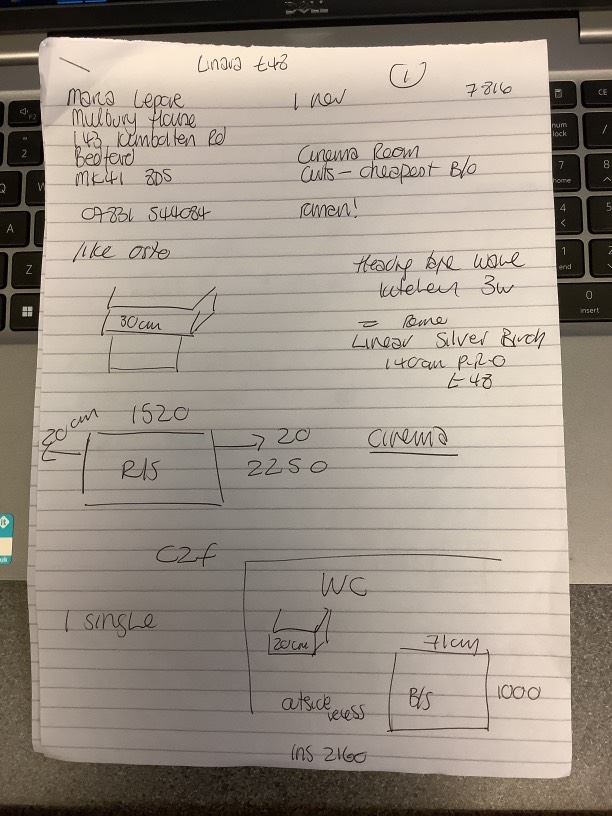 Linara £48
1
Maria Lepore
1 nev
7816
Mulbury House
143 Kimbolton Rd
Bedford
Cinema Room
MK41 8DS
Curts - cheapest B/O
07831 544084
roman!
like orto
Heading tape wave
kitchen 3w
30cm
= Rome
Linear Silver Birch
140cm P.R.O
£48
20cm
1520
20
2250
cinema
R/S
C2f
WC
1 single
20cm
71cm
outside recess
B/S
1000
INS 2160